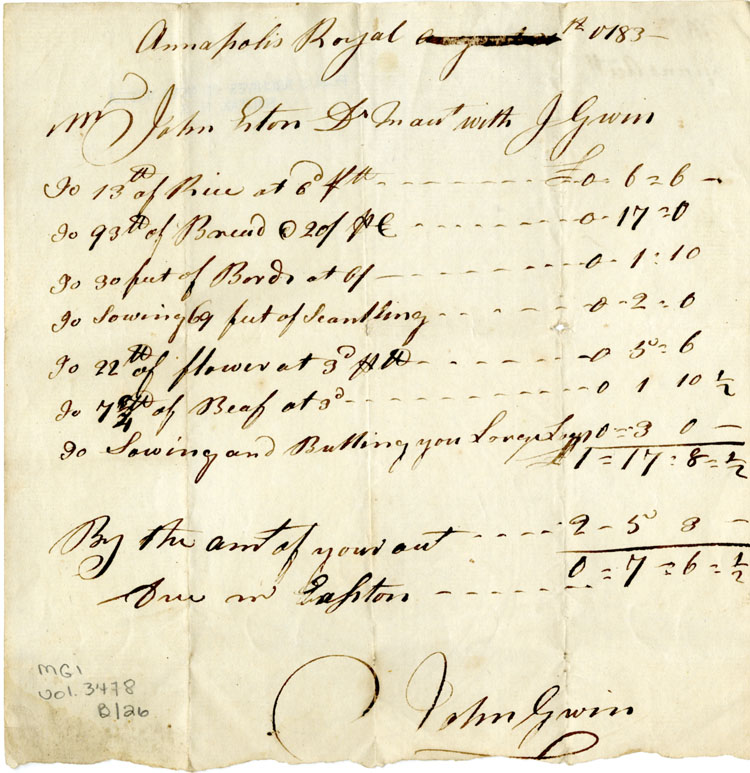 Annapolis Royal 1st 0183 —
Mr John Eton Dr in acut with J Gwin
To 13 lb of Rice at 6d ₶ lb - - - - £ 0 - 6 = 6 —
To 93 lb of Bread @ 20/ ₶ C - - - - 0 - 17 = 0
To 30 feet of Bords at 6/ — - - - - 0 - 1 : 10
To Sowing 69 feet of Scantling - - - - 0 - 2 = 0
To 22 lb of flower at 3d ₶ lb - - - - 0 5 = 6
To 7 3/4 lb of Beaf at 3d - - - - 0 1 10 1/2
To Sowing and Butting you Large Logs 0 = 3 0 —
£ 1 = 17 : 8 = 1/2
By the amt of your act - - - - 2 - 5 3 —
Due mr Easton - - - - 0 = 7 = 6 = 1/2
John Gwin
MG1
vol. 3478
B/26